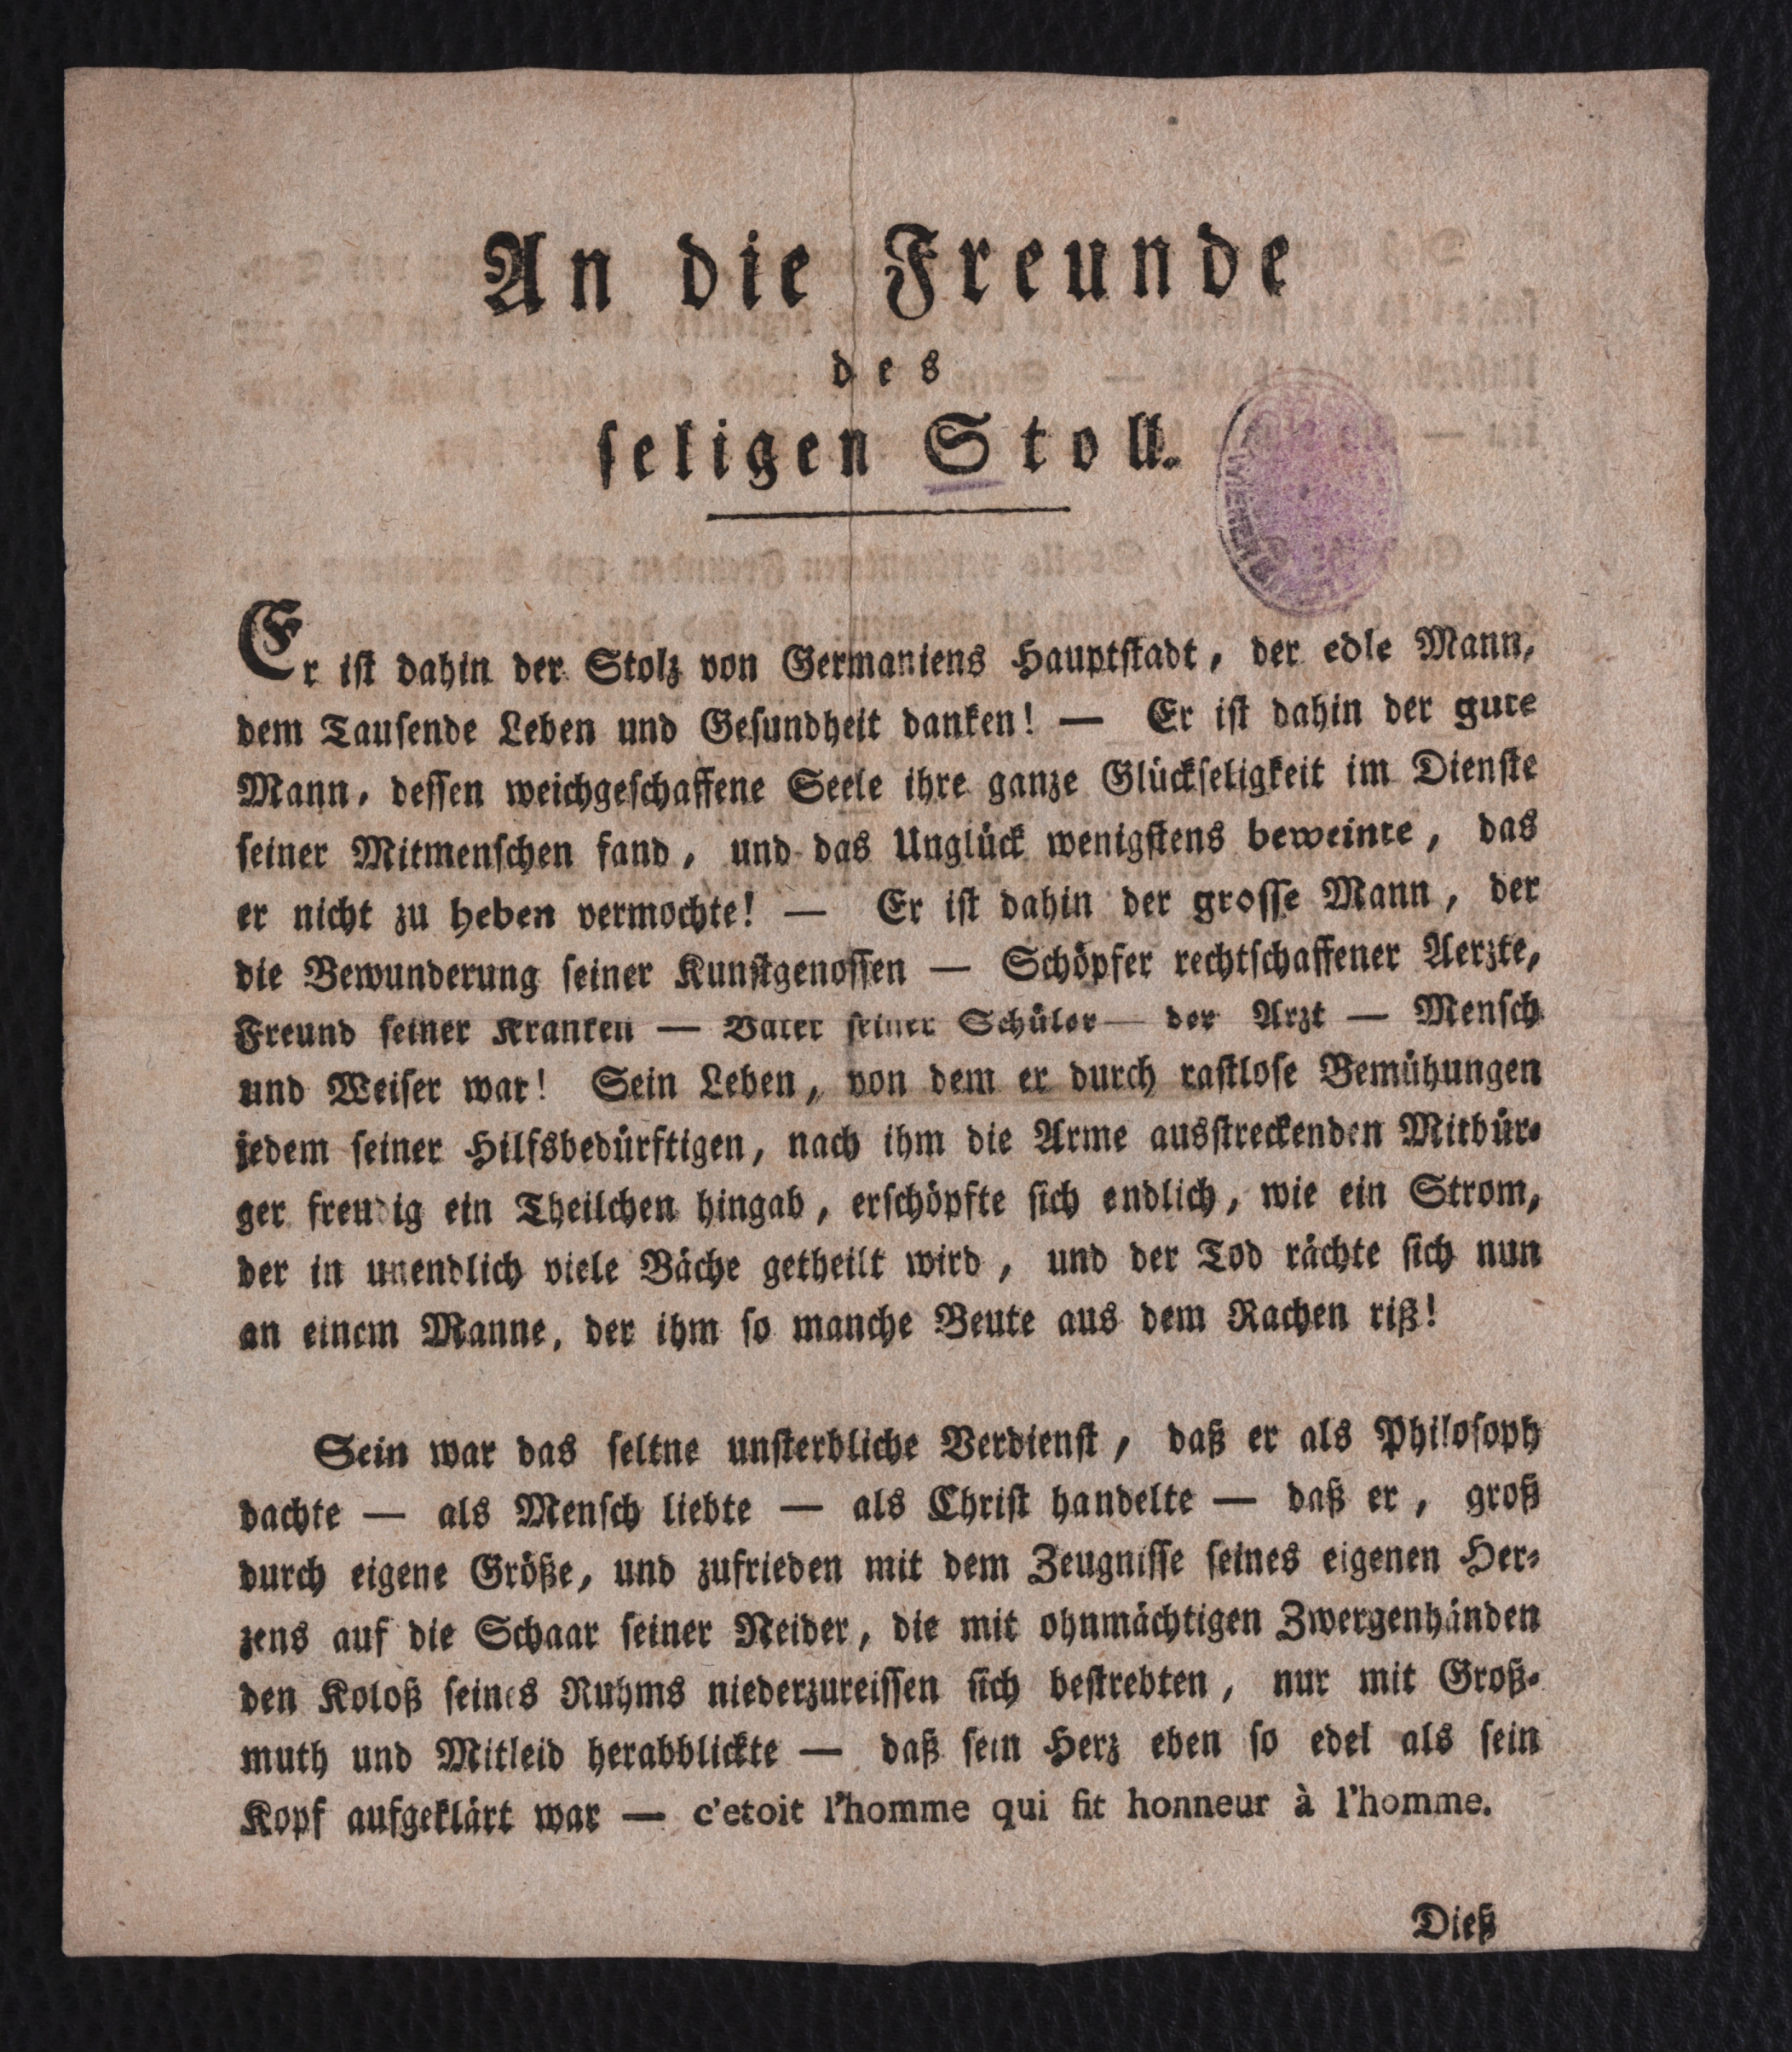 An die Freunde
des
seligen Stoll.
Er ist dahin der Stolz von Germaniens Hauptstadt, der edle Mann,
dem Tausende Leben und Gesundheit danken! — Er ist dahin der gute
Mann, dessen weichgeschaffene Seele ihre ganze Glückseligkeit im Dienste
seiner Mitmenschen fand, und das Unglück wenigstens beweinte, das
er nicht zu heben vermochte! — Er ist dahin der grosse Mann, der
die Bewunderung seiner Kunstgenossen — Schöpfer rechtschaffener Aerzte,
Freund seiner Kranken — Vater seiner Schüler — der Arzt — Mensch
und Weiser war! Sein Leben, von dem er durch rastlose Bemühungen
jedem seiner Hilfsbedürftigen, nach ihm die Arme ausstreckenden Mitbür-
ger freudig ein Theilchen hingab, erschöpfte sich endlich, wie ein Strom,
der in unendlich viele Bäche getheilt wird, und der Tod rächte sich nun
an einem Manne, der ihm so manche Beute aus dem Rachen riß!
Sein war das seltne unsterbliche Verdienst, daß er als Philosoph
dachte — als Mensch liebte — als Christ handelte — daß er, groß
durch eigene Größe, und zufrieden mit dem Zeugnisse seines eigenen Her-
zens auf die Schaar seiner Neider, die mit ohnmächtigen Zwergenhänden
den Koloß seines Ruhms niederzureissen sich bestrebten, nur mit Groß-
muth und Mitleid herabblickte — daß sein Herz eben so edel als sein
Kopf aufgeklärt war — c'etoit l'homme qui fit honneur à l'homme.
Dieß